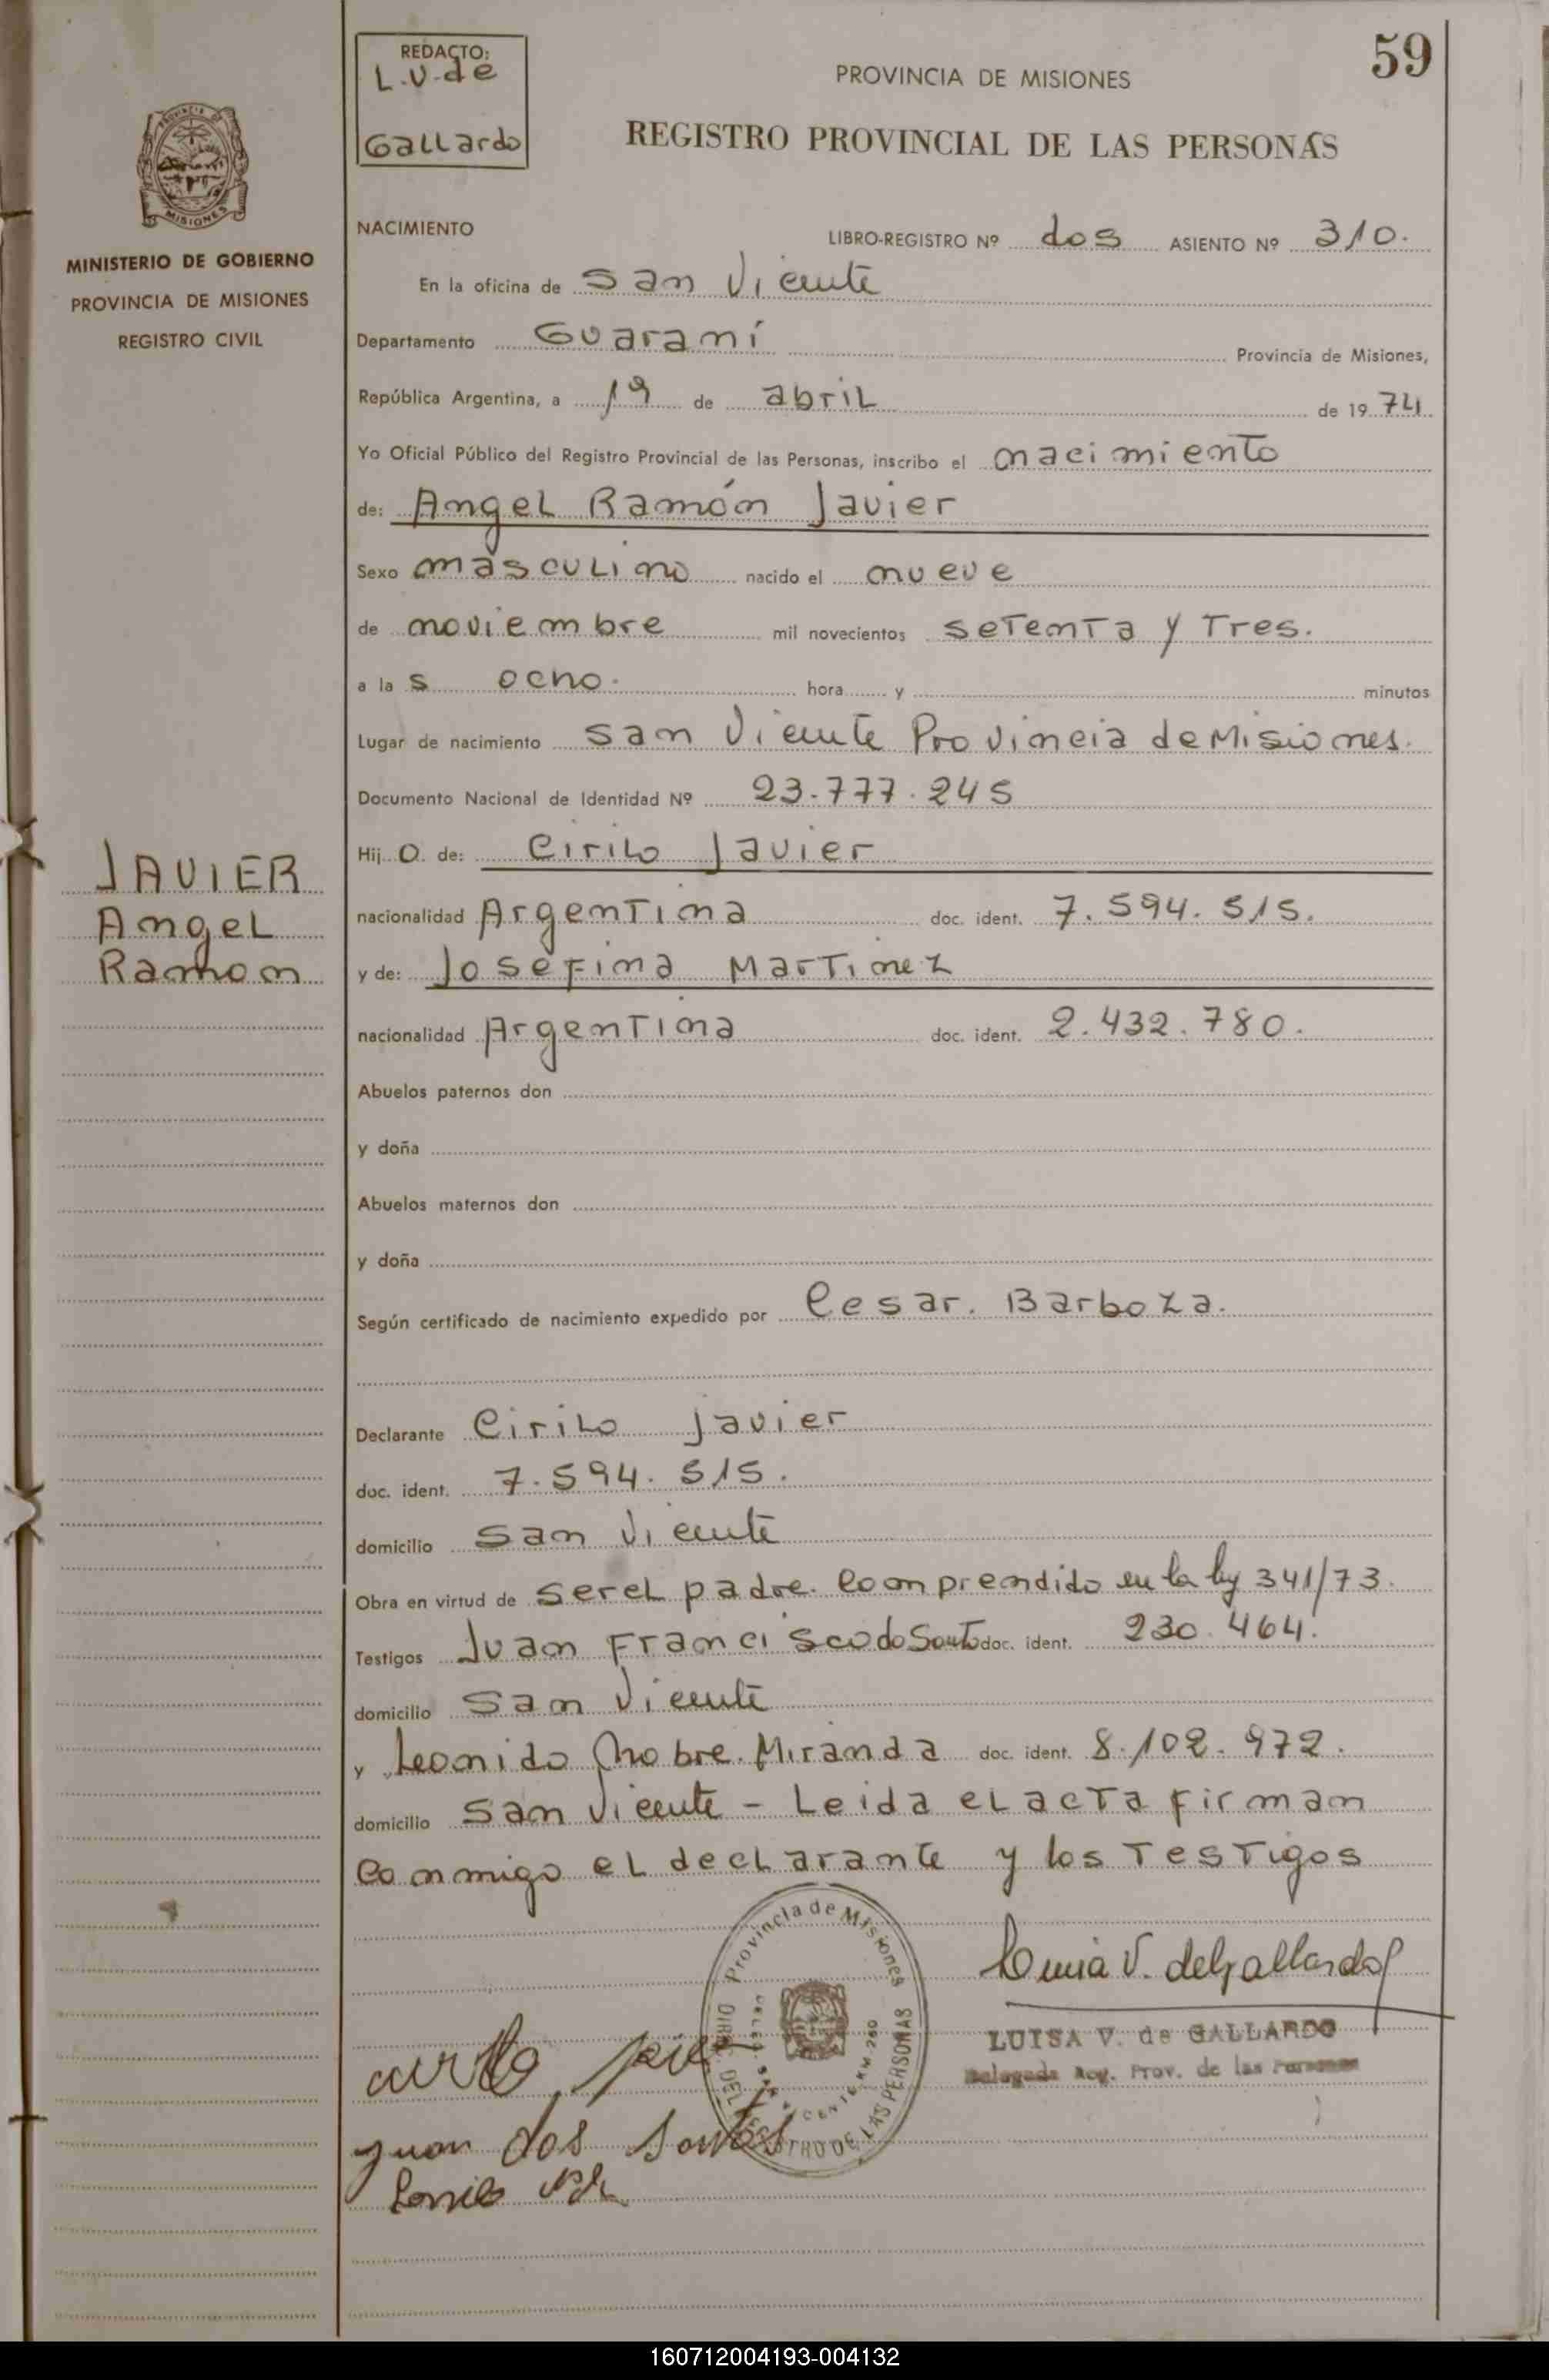 59
REDACTO:
L.V. de
Gallardo
PROVINCIA DE MISIONES
REGISTRO PROVINCIAL DE LAS PERSONAS
MISIONES
MINISTERIO DE GOBIERNO
PROVINCIA DE MISIONES
REGISTRO CIVIL
NACIMIENTO
LIBRO-REGISTRO Nº dos ASIENTO Nº 310.
En la oficina de San Vicente
Departamento Guaraní Provincia de Misiones,
República Argentina, a 19 de abril de 1974
Yo Oficial Público del Registro Provincial de las Personas, inscribo el nacimiento
de: Angel Ramón Javier
Sexo masculino nacido el nueve
de noviembre mil novecientos setenta y tres.
a las ocho. hora y minutos
Lugar de nacimiento San Vicente Provincia de Misiones.
Documento Nacional de Identidad Nº 23.777.245
Hijo de: Cirilo Javier
JAVIER
Angel
Ramon
nacionalidad Argentina doc. ident. 7.594.515.
y de: Josefina Martinez
nacionalidad Argentina doc. ident. 2.432.780.
Abuelos paternos don
y doña
Abuelos maternos don
y doña
Según certificado de nacimiento expedido por Cesar. Barboza.
Declarante Cirilo Javier
doc. ident. 7.594.515.
domicilio San Vicente
Obra en virtud de ser el padre. Comprendido en la ley 341/73.
Testigos Juan Francisco do Santo doc. ident. 230.464.
domicilio San Vicente
y Leonido Nobre. Miranda doc. ident. 8.102.972.
domicilio San Vicente - Leida el acta firman
conmigo el declarante y los testigos
Provincia de Misiones
LAS PERSONAS
Luisa V. de Gallardo
LUISA V. de GALLARDO
Delegada Reg. Prov. de las Personas
Juan dos Santos
160712004193-004132